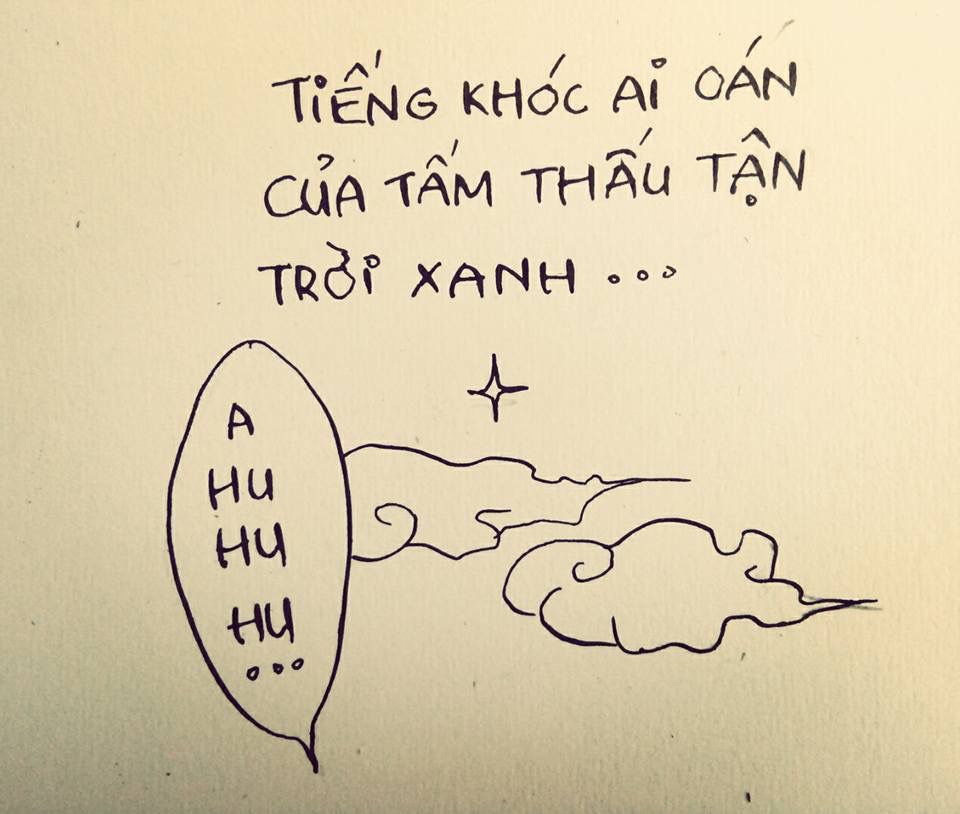 TIẾNG KHÓC AI OÁN
CỦA TẤM THẤU TẬN
TRỜI XANH...
A
HU
HU
HU
...